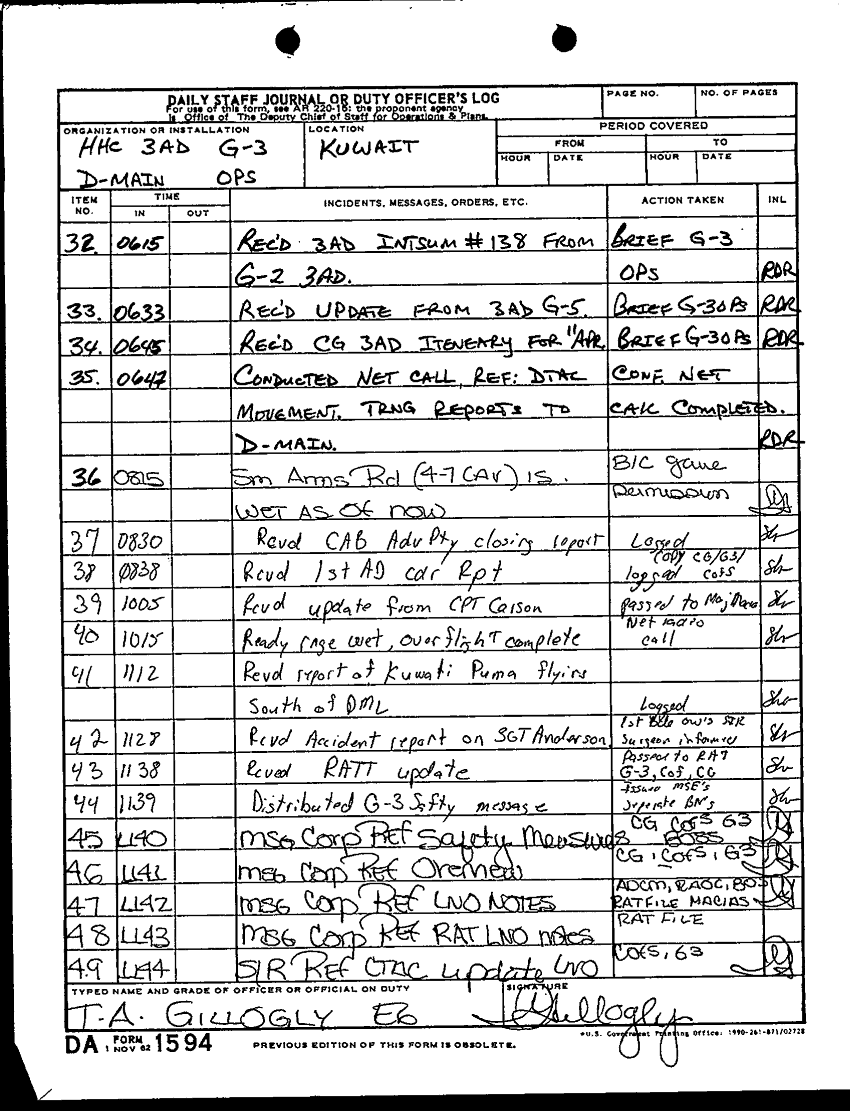 DAILY STAFF JOURNAL OR DUTY OFFICER'S LOG
For use of this form, see AR 220-15; the proponent agency
is Office of The Deputy Chief of Staff for Operations & Plans.
PAGE NO.
NO. OF PAGES
ORGANIZATION OR INSTALLATION
HHC 3AD G-3
D-MAIN OPS
LOCATION
KUWAIT
PERIOD COVERED
FROM TO
HOUR DATE HOUR DATE
ITEM NO. TIME INCIDENTS, MESSAGES, ORDERS, ETC. ACTION TAKEN INL
IN OUT
32. 0615 REC'D 3AD INTSUM #138 FROM BRIEF G-3
G-2 3AD. OPS RDR
33. 0633 REC'D UPDATE FROM 3AD G-5. BRIEF G-3 OPS RDR
34. 0645 REC'D CG 3AD ITENEARY FOR 11APR BRIEF G-3 OPS RDR
35. 0647 CONDUCTED NET CALL, REF: DTAC CONF. NET
MOVEMENT. TRNG REPORTS TO CALL COMPLETED.
D-MAIN. RDR
36 0815 Sm Arms Rd (4-7 CAV) IS. B/C gave
WET AS OF NOW permission
37 0830 Rcvd CAB Adv Pty closing report Logged
38 0838 Rcvd 1st AD cdr Rpt Copy CG/G3/
logged CofS
39 1005 Rcvd update from CPT Carson passed to Maj
40 1015 Ready rnge wet, overflight complete Net radio
call
41 1112 Rcvd report of Kuwati Puma flying
South of DML Logged
42 1128 Rcvd Accident report on SGT Anderson 1st Bde owes SIR
Surgeon informed
43 1138 Rcved RATT update Passed to RAT
G-3, CoS, CG
44 1139 Distributed G-3 Sfty message Issued MSE's
Seperate BN's
45 1140 MSG Corp Ref Safety Measures CG CofS G3
BOSS
46 1141 msg Corp Ref Overview CG, CofS, G3
47 1142 MSG Corp Ref LNO NOTES ADCM, RAOC,
RATFILE MACIAS
48 1143 MSG Corp REF RAT LNO notes RAT FILE
49 1144 SIR REF CTAC update LNO COFS, G3
TYPED NAME AND GRADE OF OFFICER OR OFFICIAL ON DUTY
T. A. GILLOGLY E6
SIGNATURE
Gillogly
DA FORM 1 NOV 62 1594
PREVIOUS EDITION OF THIS FORM IS OBSOLETE.
*U.S. Government Printing Office: 1990-261-871/02728